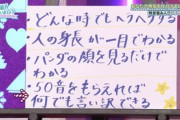 ・どんな時でもヘラヘラする
・人の身長が一目でわかる
・パンダの顔を見るだけで
わかる
・50音をもらえれば
何でも言い訳できる